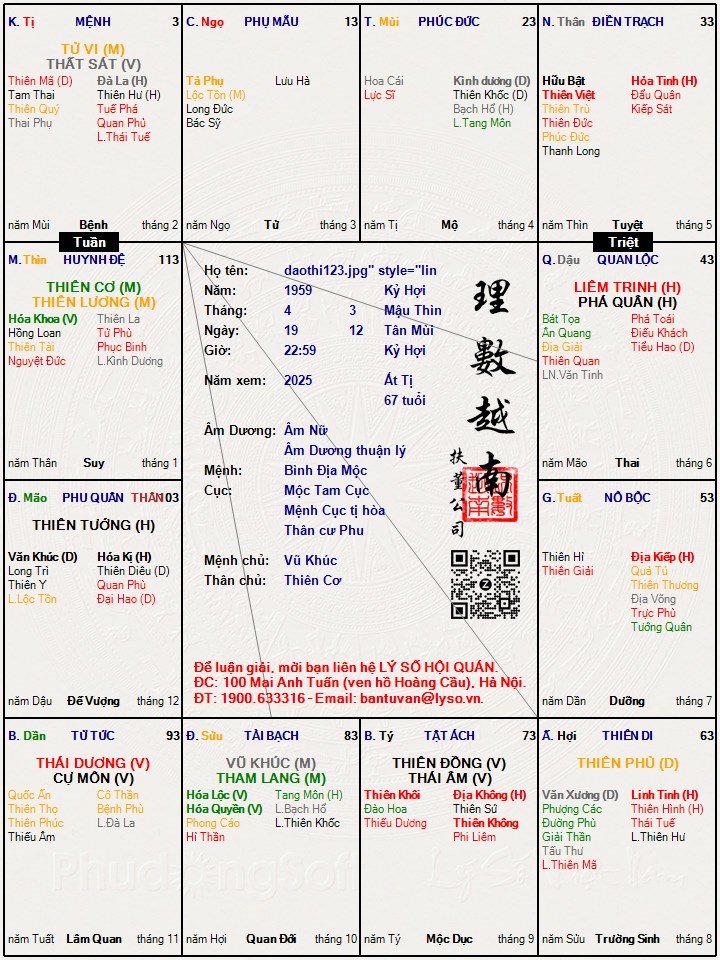 K. Tị MỆNH 3
TỬ VI (M)
THẤT SÁT (V)
Thiên Mã (D) Đà La (H)
Tam Thai Thiên Hư (H)
Thiên Quý Tuế Phá
Thai Phụ Quan Phủ
L.Thái Tuế
năm Mùi Bệnh tháng 2
C. Ngọ PHỤ MẪU 13
Tả Phụ Lưu Hà
Lộc Tồn (M)
Long Đức
Bác Sỹ
năm Ngọ Tử tháng 3
T. Mùi PHÚC ĐỨC 23
Hoa Cái Kình dương (D)
Lực Sĩ Thiên Khốc (D)
Bạch Hổ (H)
L.Tang Môn
năm Tị Mộ tháng 4
N. Thân ĐIỀN TRẠCH 33
Hữu Bật Hỏa Tinh (H)
Thiên Việt Đẩu Quân
Thiên Trù Kiếp Sát
Thiên Đức
Phúc Đức
Thanh Long
năm Thìn Tuyệt tháng 5
Tuần
Triệt
M. Thìn HUYNH ĐỆ 113
THIÊN CƠ (M)
THIÊN LƯƠNG (M)
Hóa Khoa (V) Thiên La
Hồng Loan Tử Phù
Thiên Tài Phục Binh
Nguyệt Đức L.Kình Dương
năm Thân Suy tháng 1
Họ tên: daothi123.jpg" style="lin
Năm: 1959 Kỷ Hợi
Tháng: 4 3 Mậu Thìn
Ngày: 19 12 Tân Mùi
Giờ: 22:59 Kỷ Hợi
Năm xem: 2025 Ất Tị
67 tuổi
Âm Dương: Âm Nữ
Âm Dương thuận lý
Mệnh: Bình Địa Mộc
Cục: Mộc Tam Cục
Mệnh Cục tị hòa
Thân cư Phu
Mệnh chủ: Vũ Khúc
Thân chủ: Thiên Cơ
理數越南
扶董公司
Để luận giải, mời bạn liên hệ LÝ SỐ HỘI QUÁN.
ĐC: 100 Mai Anh Tuấn (ven hồ Hoàng Cầu), Hà Nội.
ĐT: 1900.633316 - Email: bantuvan@lyso.vn.
Q. Dậu QUAN LỘC 43
LIÊM TRINH (H)
PHÁ QUÂN (H)
Bát Tọa Phá Toái
Ân Quang Điếu Khách
Địa Giải Tiểu Hao (D)
Thiên Quan
LN.Văn Tinh
năm Mão Thai tháng 6
Đ. Mão PHU QUÂN THÂN 103
THIÊN TƯỚNG (H)
Văn Khúc (D) Hóa Kị (H)
Long Trì Thiên Diêu (D)
Thiên Y Quan Phù
L.Lộc Tồn Đại Hao (D)
năm Dậu Đế Vượng tháng 12
G. Tuất NÔ BỘC 53
Thiên Hỉ Địa Kiếp (H)
Thiên Giải Quả Tú
Thiên Thương
Địa Võng
Trực Phù
Tướng Quân
năm Dần Dưỡng tháng 7
B. Dần TỬ TỨC 93
THÁI DƯƠNG (V)
CỰ MÔN (V)
Quốc Ấn Cô Thần
Thiên Thọ Bệnh Phù
Thiên Phúc L.Đà La
Thiếu Âm
năm Tuất Lâm Quan tháng 11
Đ. Sửu TÀI BẠCH 83
VŨ KHÚC (M)
THAM LANG (M)
Hóa Lộc (V) Tang Môn (H)
Hóa Quyền (V) L.Bạch Hổ
Phong Cáo L.Thiên Khốc
Hỉ Thần
năm Hợi Quan Đới tháng 10
B. Tý TẬT ÁCH 73
THIÊN ĐỒNG (V)
THÁI ÂM (V)
Thiên Khôi Địa Không (H)
Đào Hoa Thiên Sứ
Thiếu Dương Thiên Không
Phi Liêm
năm Tý Mộc Dục tháng 9
Ấ. Hợi THIÊN DI 63
THIÊN PHỦ (D)
Văn Xương (D) Linh Tinh (H)
Phượng Các Thiên Hình (H)
Đường Phù Thái Tuế
Giải Thần L.Thiên Hư
Tấu Thư
L.Thiên Mã
năm Sửu Trường Sinh tháng 8